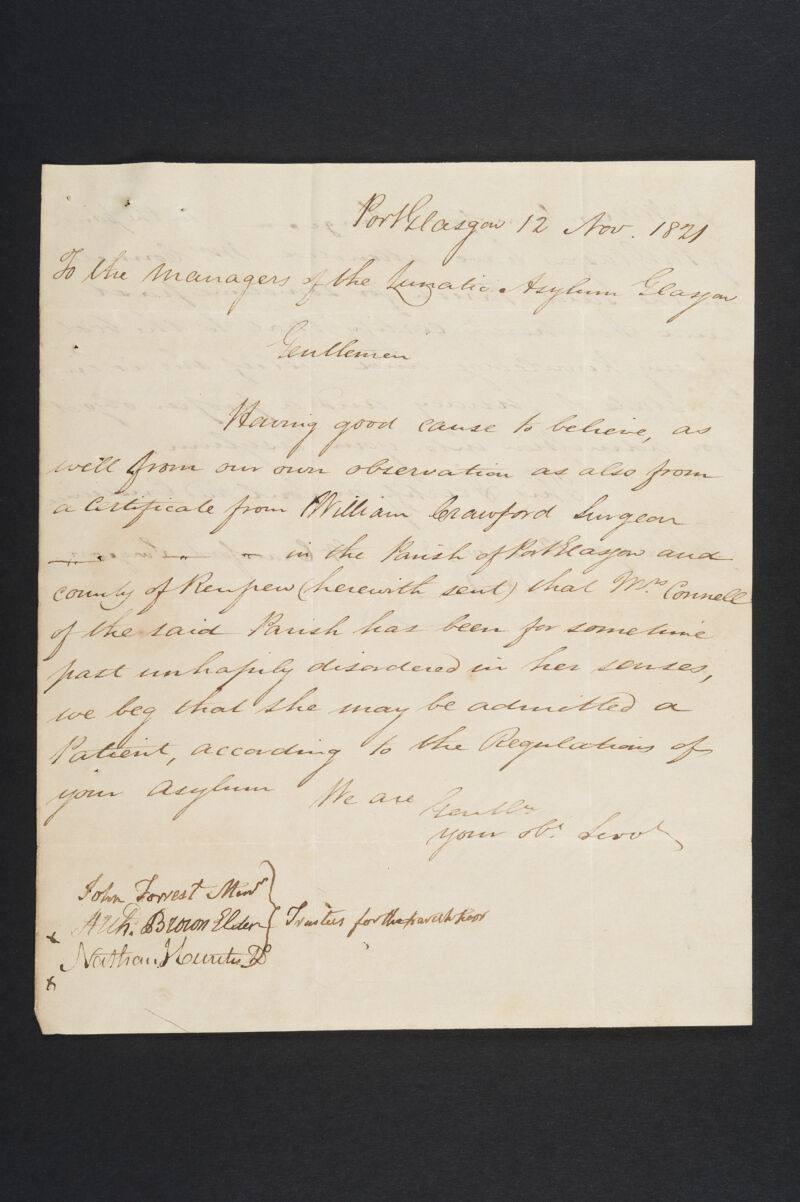 PortGlasgow 12 Nov. 1821
To the Managers of the Lunatic Asylum Glasgow
Gentlemen
Having good cause to believe, as
well from our own observation as also from
a certificate from William Crawford Surgeon
in the Parish of PortGlasgow and
county of Renfrew (herewith sent) that Mrs Connell
of the said Parish has been for sometime
past unhapily disordered in her senses,
we beg that she may be admitted a
Patient, according to the Regulations of
your Asylum We are Gentln
your obt Servts
John Forrest Minr
Archd. Brown Elder Trustees for the parish Poor
x Nathan Hunter Do
x